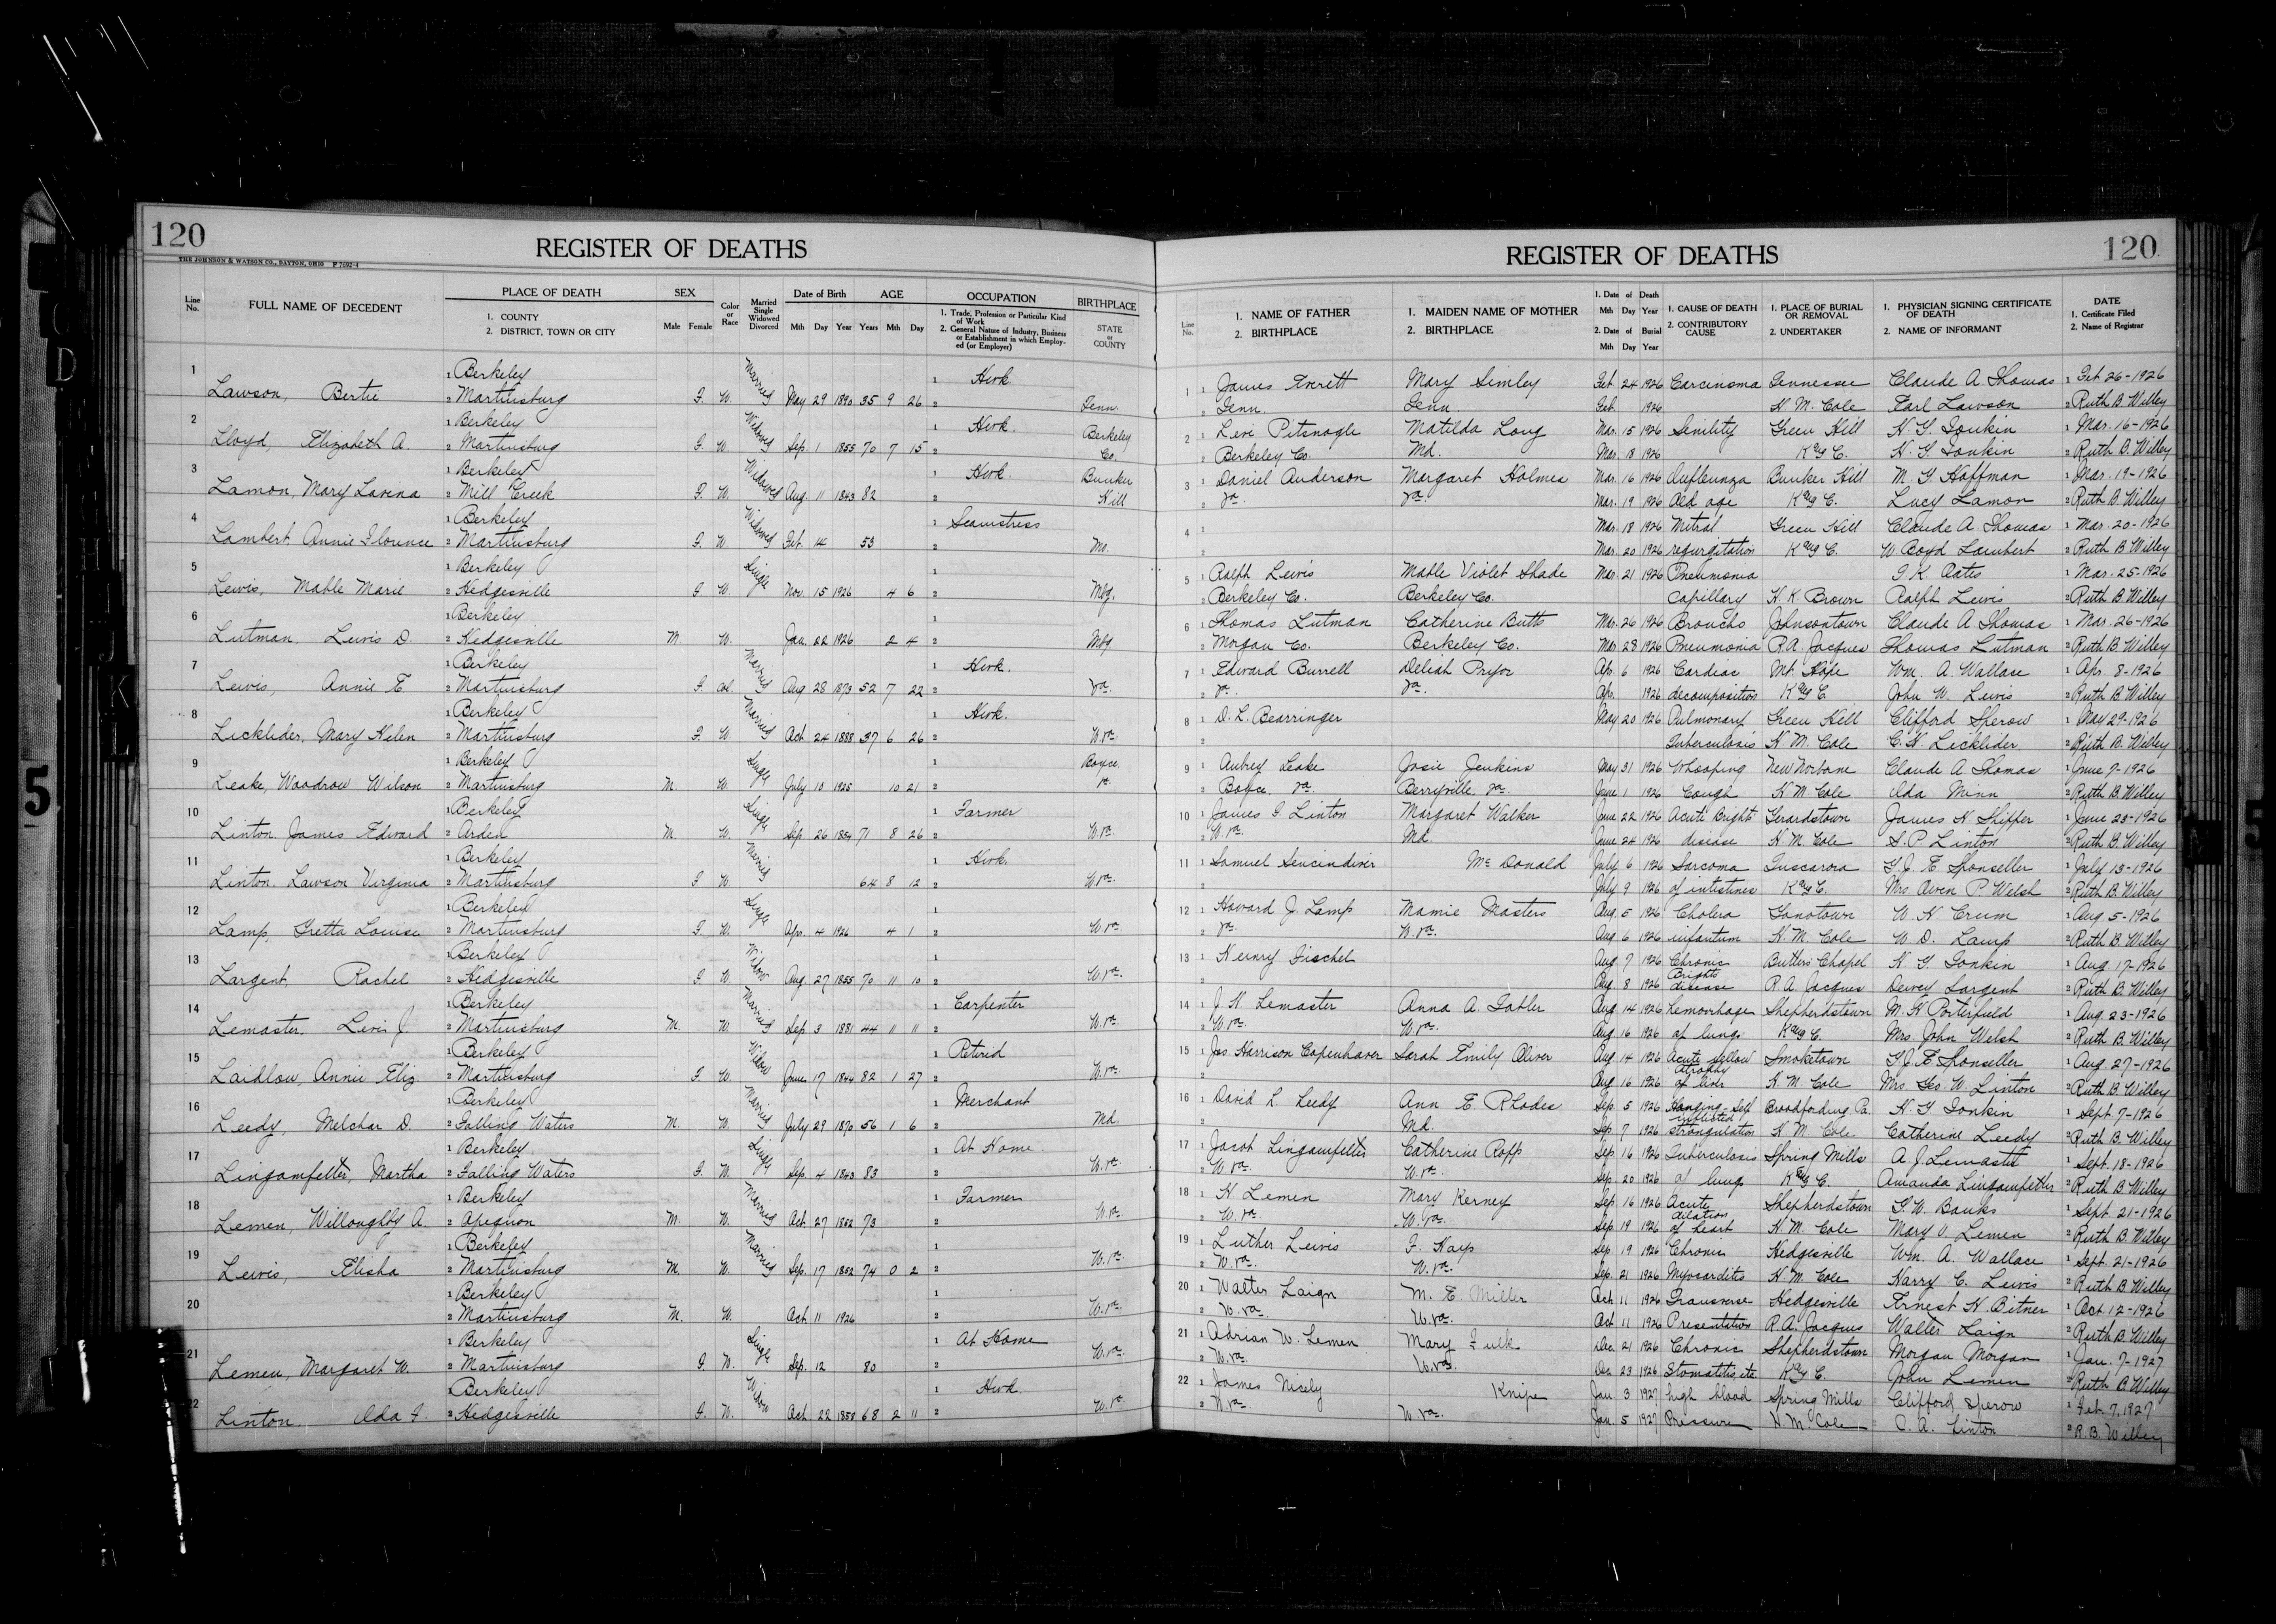 120
REGISTER OF DEATHS
THE JOHNSON & WATSON CO., DAYTON, OHIO P 7092-4
Line No. FULL NAME OF DECEDENT PLACE OF DEATH 1. COUNTY 2. DISTRICT, TOWN OR CITY SEX Male Female Color or Race Married Single Widowed Divorced Date of Birth Mth Day Year AGE Years Mth Day OCCUPATION 1. Trade, Profession or Particular Kind of Work 2. General Nature of Industry, Business or Establishment in which Employed (or Employer) BIRTHPLACE STATE or COUNTY
1 1 Berkeley 1 Hwk.
Lawson, Bertie 2 Martinsburg F. W. Married May 29 1890 35 9 26 2 Tenn.
2 1 Berkeley 1 Hwk.
Lloyd, Elizabeth A. 2 Martinsburg F. W Widowed Sep. 1 1855 70 7 15 2 Berkeley Co.
3 1 Berkeley 1 Hwk.
Lamon, Mary Lavina 2 Mill Creek F. W. Widowed Aug 11 1843 82 2 Bunker Hill
4 1 Berkeley 1 Seamstress
Lambert Annie Florence 2 Martinsburg F. W Widowed Feb. 14 53 2 Mo.
5 1 Berkeley 1
Lewis, Mable Marie 2 Hedgesville F W. Single Nov. 15 1926 4 6 2 Mbg.
6 1 Berkeley 1
Lutman, Lewis D. 2 Hedgesville M. W. Jan. 22 1926 2 4 2 Mbg
7 1 Berkeley 1 Hwk.
Lewis, Annie E. 2 Martinsburg F. Col. Married Aug 28 1873 52 7 22 2 Va.
8 1 Berkeley 1 Hwk.
Licklider, Mary Helen 2 Martinsburg F. W. Married Oct 24 1888 37 6 26 2 W.Va.
9 1 Berkeley 1 Boyce.
Leake, Woodrow Wilson 2 Martinsburg M. W. Single July 10 1925 10 21 2 Va.
10 1 Berkeley 1 Farmer
Linton, James Edward 2 Arden M. W. Single Sep 26 1854 71 8 26 2 W.Va.
11 1 Berkeley 1 Hwk.
Linton, Lawson Virginia 2 Martinsburg F W Married 64 8 12 2 W.Va.
12 1 Berkeley 1
Lamp, Gretta Louise 2 Martinsburg F. W. Single Apr. 4 1926 4 1 2 W.Va.
13 1 Berkeley 1
Largent, Rachel 2 Hedgesville F W Widow Aug. 27 1855 70 11 10 2 W.Va.
14 1 Berkeley 1 Carpenter
Lemaster, Levi J. 2 Martinsburg M. W. Married Sep 3 1881 44 11 11 2 W.Va.
15 1 Berkeley 1 Retired
Laidlow, Annie Eliz 2 Martinsburg F. W. Widow June 17 1844 82 1 27 2 W.Va.
16 1 Berkeley 1 Merchant
Leedy, Melchar D. 2 Falling Waters M. W. Married July 29 1870 56 1 6 2 Md.
17 1 Berkeley 1 At Home.
Lingamfelter, Martha 2 Falling Waters F W. Single Sep. 4 1843 83 2 W.Va.
18 1 Berkeley 1 Farmer
Lemen, Willoughby A. 2 Opequon M. W. Married Oct. 27 1852 73 2 W.Va.
19 1 Berkeley 1
Lewis, Elisha 2 Martinsburg M. W. Married Sep. 17 1852 74 0 2 2 W.Va.
20 1 Berkeley 1
2 Martinsburg M. W. Oct 11 1926 2 W.Va.
21 1 Berkeley 1 At Home
Lemen, Margaret W. 2 Martinsburg F W. Single Sep. 12 80 2 W.Va.
22 1 Berkeley 1 Hwk.
Linton, Ida F. 2 Hedgesville F. W. Widow Oct. 22 1858 68 2 11 2 W.Va.
REGISTER OF DEATHS
120
Line No. 1. NAME OF FATHER 2. BIRTHPLACE 1. MAIDEN NAME OF MOTHER 2. BIRTHPLACE 1. Date of Death Mth Day Year 2. Date of Burial Mth Day Year 1. CAUSE OF DEATH 2. CONTRIBUTORY CAUSE 1. PLACE OF BURIAL OR REMOVAL 2. UNDERTAKER 1. PHYSICIAN SIGNING CERTIFICATE OF DEATH 2. NAME OF INFORMANT DATE 1. Certificate Filed 2. Name of Registrar
1 1 James Everett Mary Simley Feb. 24 1926 Carcinoma Tennessee Claude A. Thomas 1 Feb 26-1926
2 Tenn. Tenn. Feb. 1926 H. M. Cole Earl Lawson 2 Ruth B. Willey
2 1 Levi Pitsnogle Matilda Long Mar. 15 1926 Senility Green Hill H. G. Tonkin 1 Mar. 16-1926
2 Berkeley Co. Md. Mar. 18 1926 K & C. H. G Tonkin 2 Ruth B. Willey
3 1 Daniel Anderson Margaret Holmes Mar. 16 1926 Influenza Bunker Hill M. G. Hoffman 1 Mar. 19-1926
2 Va. Va. Mar. 19 1926 Old age K & C. Lucy Lamon 2 Ruth B. Willey
4 1 Mar. 18 1926 Mitral Green Hill Claude A Thomas 1 Mar. 20-1926
2 Mar. 20 1926 regurgitation K & C. W. Boyd Lambert 2 Ruth B Willey
5 1 Ralph Lewis Mable Violet Shade Mar. 21 1926 Pneumonia I. K. Oates 1 Mar. 25-1926
2 Berkeley Co. Berkeley Co. capillary H. K. Brown Ralph Lewis 2 Ruth B. Willey
6 1 Thomas Lutman Catherine Butts Mar. 26 1926 Broncho Johnsontown Claude A Thomas 1 Mar. 26-1926
2 Morgan Co. Berkeley Co. Mar. 28 1926 Pneumonia R.A. Jacques Thomas Lutman 2 Ruth B. Willey
7 1 Edward Burrell Deliah Pryor Apr. 6 1926 Cardiac Mt. Hope Wm. A. Wallace 1 Apr. 8-1926
2 Va. Va. Apr. 1926 decomposition K & C. John W. Lewis 2 Ruth B. Willey
8 1 D. L. Bearringer May 20 1926 Pulmonary Green Hill Clifford Sperow 1 May 29-1926
2 Tuberculosis H. M. Cole C. H. Licklider 2 Ruth B. Willey
9 1 Aubrey Leake Josie Jenkins May 31 1926 Whooping New Norborne Claude A Thomas 1 June 7-1926
2 Boyce Va. Berryville Va. June 1 1926 Cough H. M. Cole Ida Minn 2 Ruth B. Willey
10 1 James G Linton Margaret Walker June 22 1926 Acute Brights Gerardstown James H. Shipper 1 June 23-1926
2 W.Va. Md. June 24 1926 disease H. M. Cole S. P Linton 2 Ruth B. Willey
11 1 Samuel Sencindiver Mc Donald July 6 1926 Sarcoma Tuscarora G. J. E Sponseller 1 July 13-1926
2 July 9 1926 of intestines K & C. Mrs. Owen P. Welsh 2 Ruth B. Willey
12 1 Howard J. Lamp Mamie Masters Aug. 5 1926 Cholera Ganotown W. H Crum 1 Aug 5-1926
2 Va. W.Va. Aug 6 1926 infantum H. M. Cole W. D. Lamp 2 Ruth B. Willey
13 1 Henry Fischel Aug. 7 1926 Chronic Butlers Chapel H. G. Tonkin 1 Aug 17-1926
2 Aug. 8 1926 Brights disease R. A. Jacques Dewey Largent 2 Ruth B. Willey
14 1 J. H. Lemaster Anna A. Tabler Aug 14 1926 Hemorrhage Shepherdstown M. H Porterfield 1 Aug. 23-1926
2 W.Va. W.Va. Aug 16 1926 of lungs K & C. Mrs. John Welsh 2 Ruth B. Willey
15 1 Jas Harrison Copenhaver Sarah Emily Oliver Aug. 14 1926 Acute yellow Smoketown G. J. E Sponseller 1 Aug. 27-1926
2 Aug 16 1926 atrophy of liver H. M. Cole Mrs. Geo. W. Linton 2 Ruth B. Willey
16 1 David L. Leedy Ann E Rhodes Sep. 5 1926 Hanging - Self Broadfording Pa. H. G Tonkin 1 Sept. 7-1926
2 Md. Sep. 7 1926 inflicted strangulation H. M. Cole Catherine Leedy 2 Ruth B. Willey
17 1 Jacob Lingamfelter Catherine Ropp Sep. 16 1926 Tuberculosis Spring Mills A. J. Lemaster 1 Sept. 18-1926
2 W.Va. W.Va. Sep 20 1926 of lungs K & C. Amanda Lingamfelter 2 Ruth B Willey
18 1 H Lemen Mary Kerney Sep. 16 1926 Acute Shepherdstown G. W. Banks 1 Sept. 21-1926
2 W.Va. W.Va. Sep. 19 1926 dilation of heart H. M. Cole Mary V. Lemen 2 Ruth B Willey
19 1 Luther Lewis F. Hays Sep 19 1926 Chronic Hedgesville Wm. A. Wallace 1 Sept. 21-1926
2 W.Va. W.Va. Sep. 21 1926 Myocarditis H. M. Cole Harry C. Lewis 2 Ruth B. Willey
20 1 Walter Laign M. E. Miller Oct. 11 1926 Transverse Hedgesville Ernest H Bitner 1 Oct. 12-1926
2 W.Va. W.Va. Oct 11 1926 Presentation R. A. Jacques Walter Laign 2 Ruth B. Willey
21 1 Adrian W. Lemen Mary Fulk Dec. 21 1926 Chronic Shepherdstown Morgan Morgan 1 Jan. 7-1927
2 W.Va. W.Va. Dec 23 1926 Stomatitis, etc K & C. John Lemen 2 Ruth B. Willey
22 1 James Nicely Knipe Jan. 3 1927 high blood Spring Mills Clifford Sperow 1 Feb. 7, 1927
2 W.Va. W.Va. Jan. 5 1927 Pressure H. M. Cole C. A. Linton 2 R. B. Willey